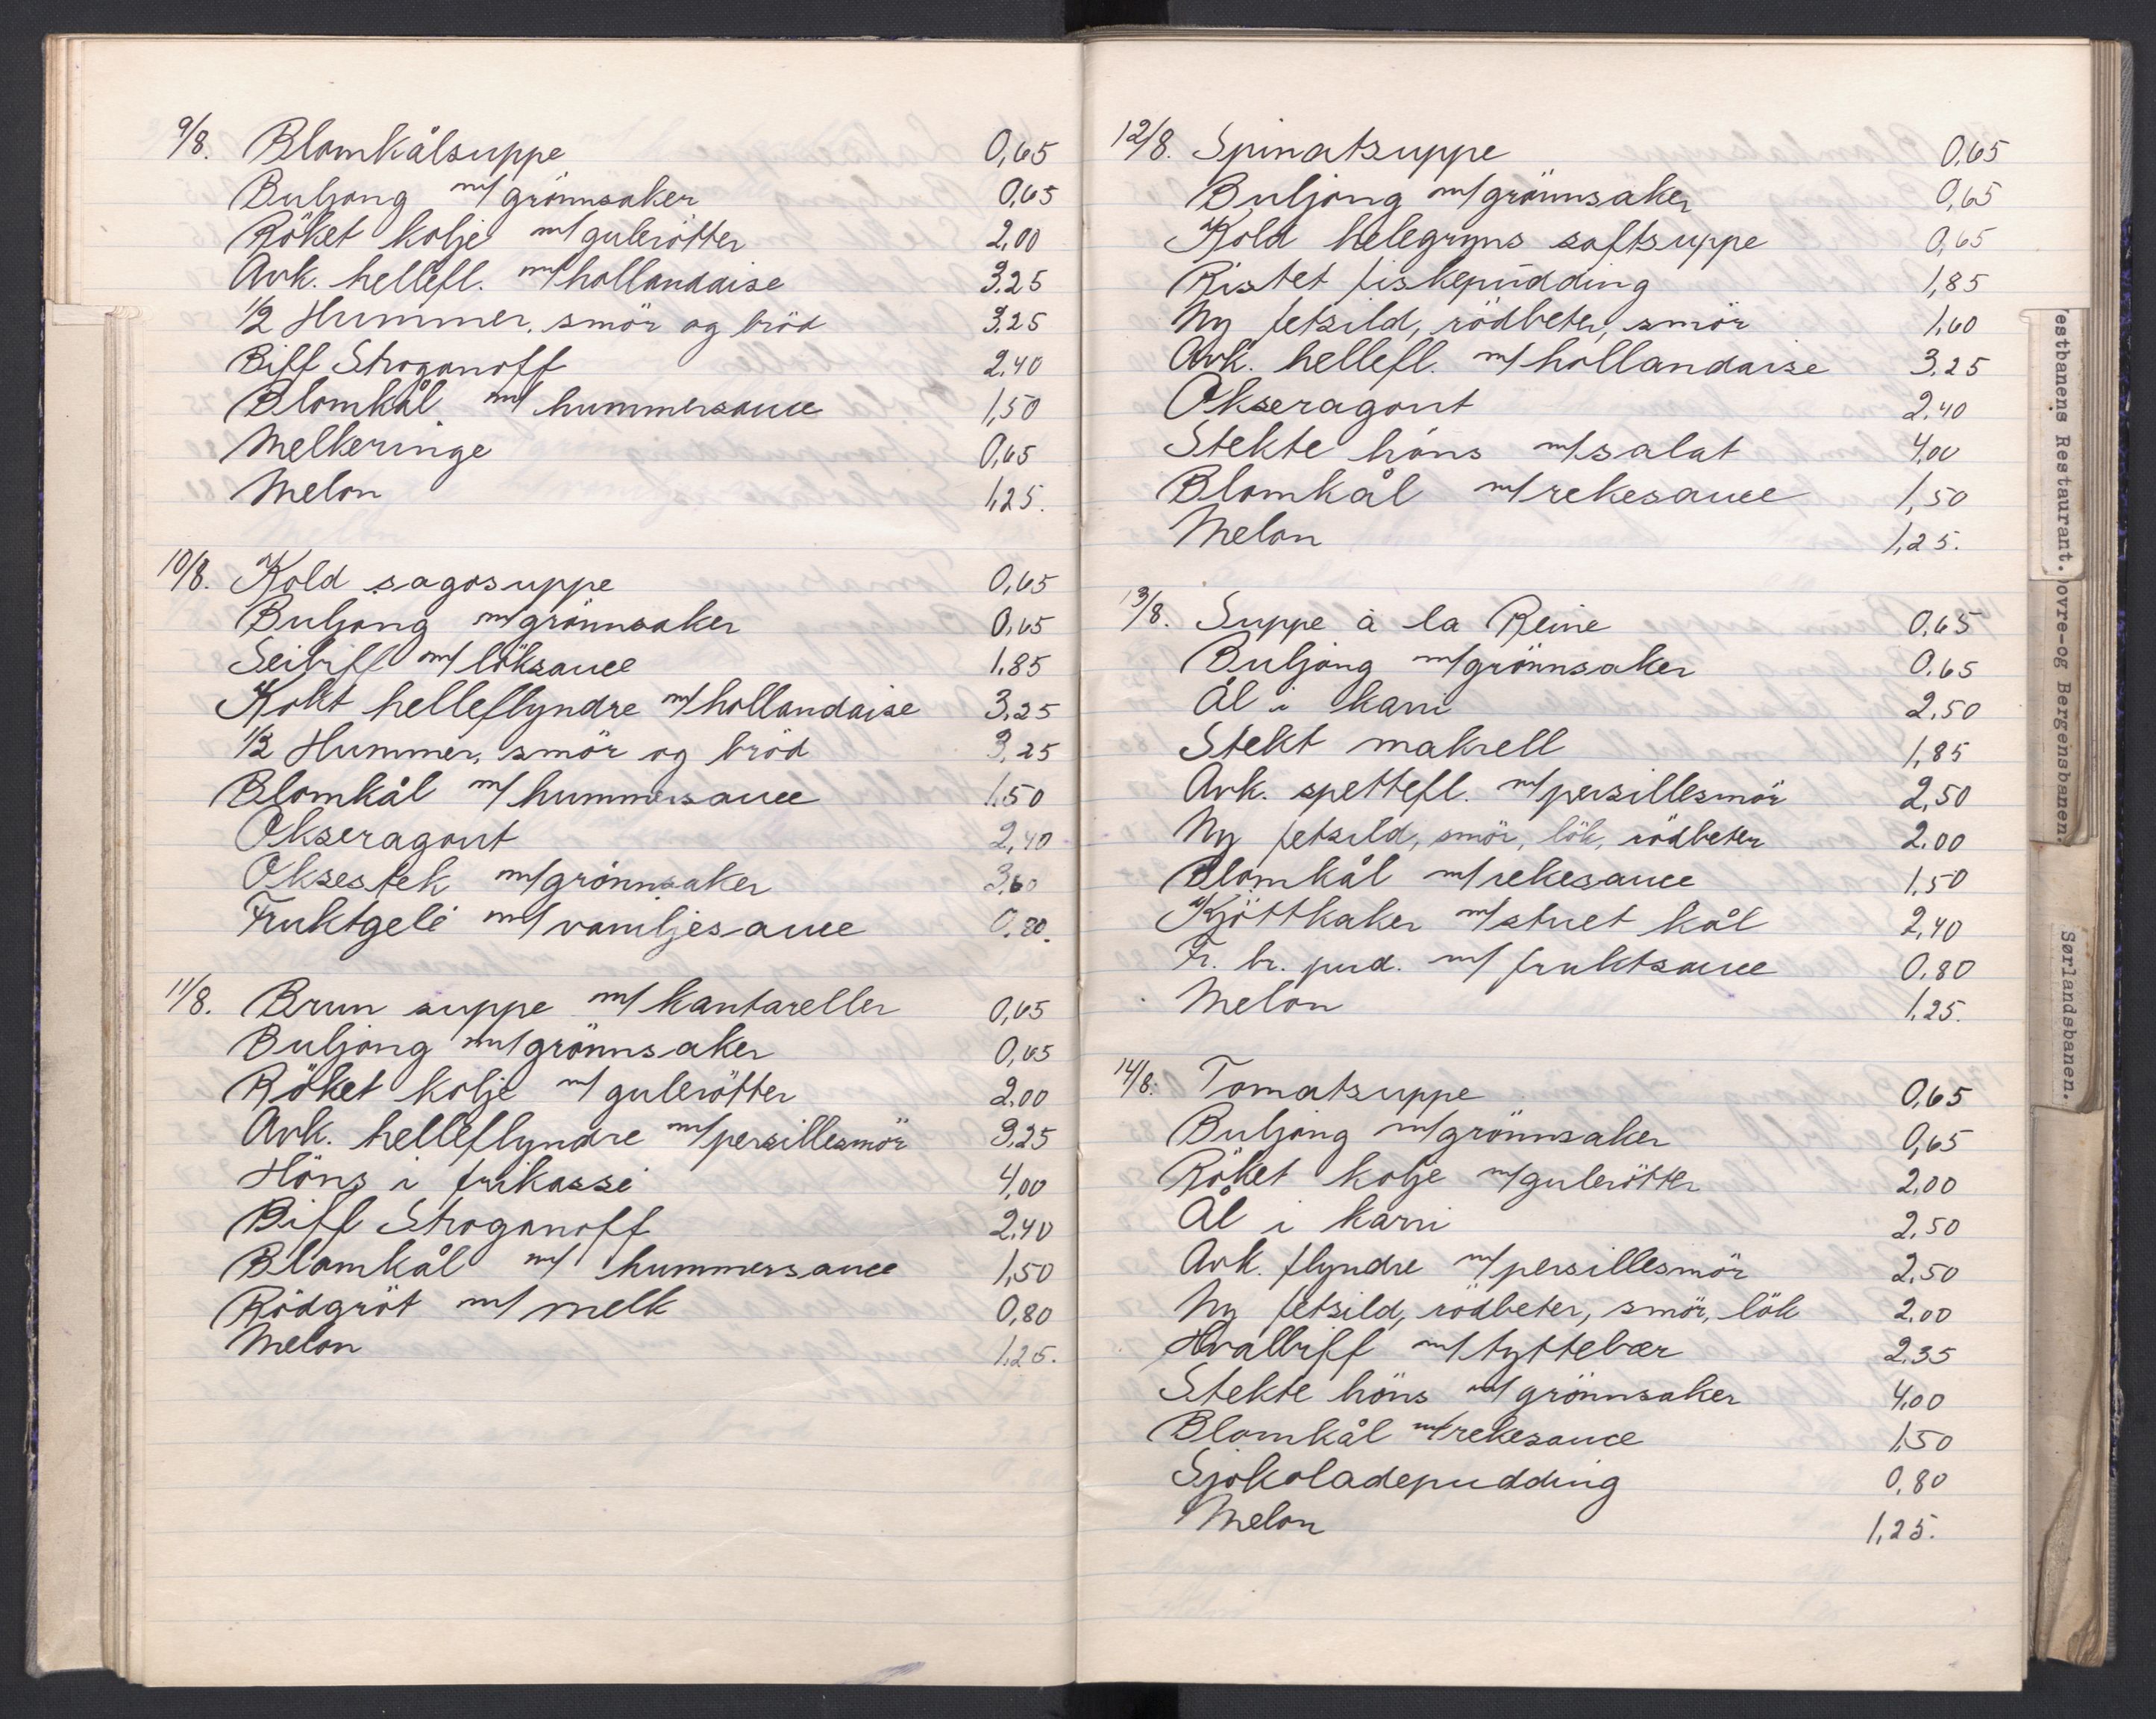 9/8. Blomkålsuppe 0,65
Buljong m/ grönnsaker 0,65
Röket kolje m/ gulerötter 2,00
Avk. hellefl. m/ hollandaise 3.25
1/2 Hummer, smör og bröd 3,25
Biff Stroganoff 2.40
Blomkål m/ hummersauce 1,50
Melkeringe 0,65
Melon 1,25.
10/8. Kold sagosuppe 0,65
Buljong m/ grönnsaker 0,65
Seibiff m/ löksauce 1.85
Kokt helleflyndre m/ hollandaise 3.25
1/2 Hummer, smör og bröd 3,25
Blomkål m/ hummersauce 1.50
Okseragout 2,40
Oksestek m/ grönnsaker 3,60
Fruktgelé m/ vaniljesauce 0.80.
11/8. Brun suppe m/ kantareller 0,65
Buljong m/ grönnsaker 0,65
Röket kolje m/ gulerötter 2.00
Avk. helleflyndre m/ persillesmör 3.25
Höns i frikassé 4,00
Biff Stroganoff 2.40
Blomkål m/ hummersauce 1,50
Rödgröt m/ melk 0,80
Melon 1.25.
12/8. Spinatsuppe 0,65
Buljong m/ grönnsaker 0,65
Kold helegryns saftsuppe 0,65
Ristet fiskepudding 1,85
Ny fetsild, rödbeter, smör 1.60
Avk. hellefl. m/ hollandaise 3.25
Okseragout 2.40
Stekte höns m/ salat 4,00
Blomkål m/ rekesauce 1,50
Melon 1,25.
13/8. Suppe à la Reine 0.65
Buljong m/ grönnsaker 0.65
Ål i karri 2,50
Stekt makrell 1,85
Avk. spettefl. m/ persillesmör 2,50
Ny fetsild, smör, lök, rödbeter 2.00
Blomkål m/ rekesauce 1,50
Kjöttkaker m/ stuet kål 2,40
Fr. br. pud. m/ fruktsauce 0.80
Melon 1.25.
14/8. Tomatsuppe 0,65
Buljong m/ grönnsaker 0,65
Röket kolje m/ gulerötter 2.00
Ål i karri 2.50
Avk. flyndre m/ persillesmör 2.50
Ny fetsild, rödbeter, smör, lök 2.00
Hvalbiff m/ tyttebær 2.35
Stekte höns m/ grönnsaker 4,00
Blomkål m/ rekesauce 1.50
Sjokoladepudding 0.80
Melon 1,25.
estbanens Restaurant.
ovre-og Bergensbanen.
Sørlandsbanen.